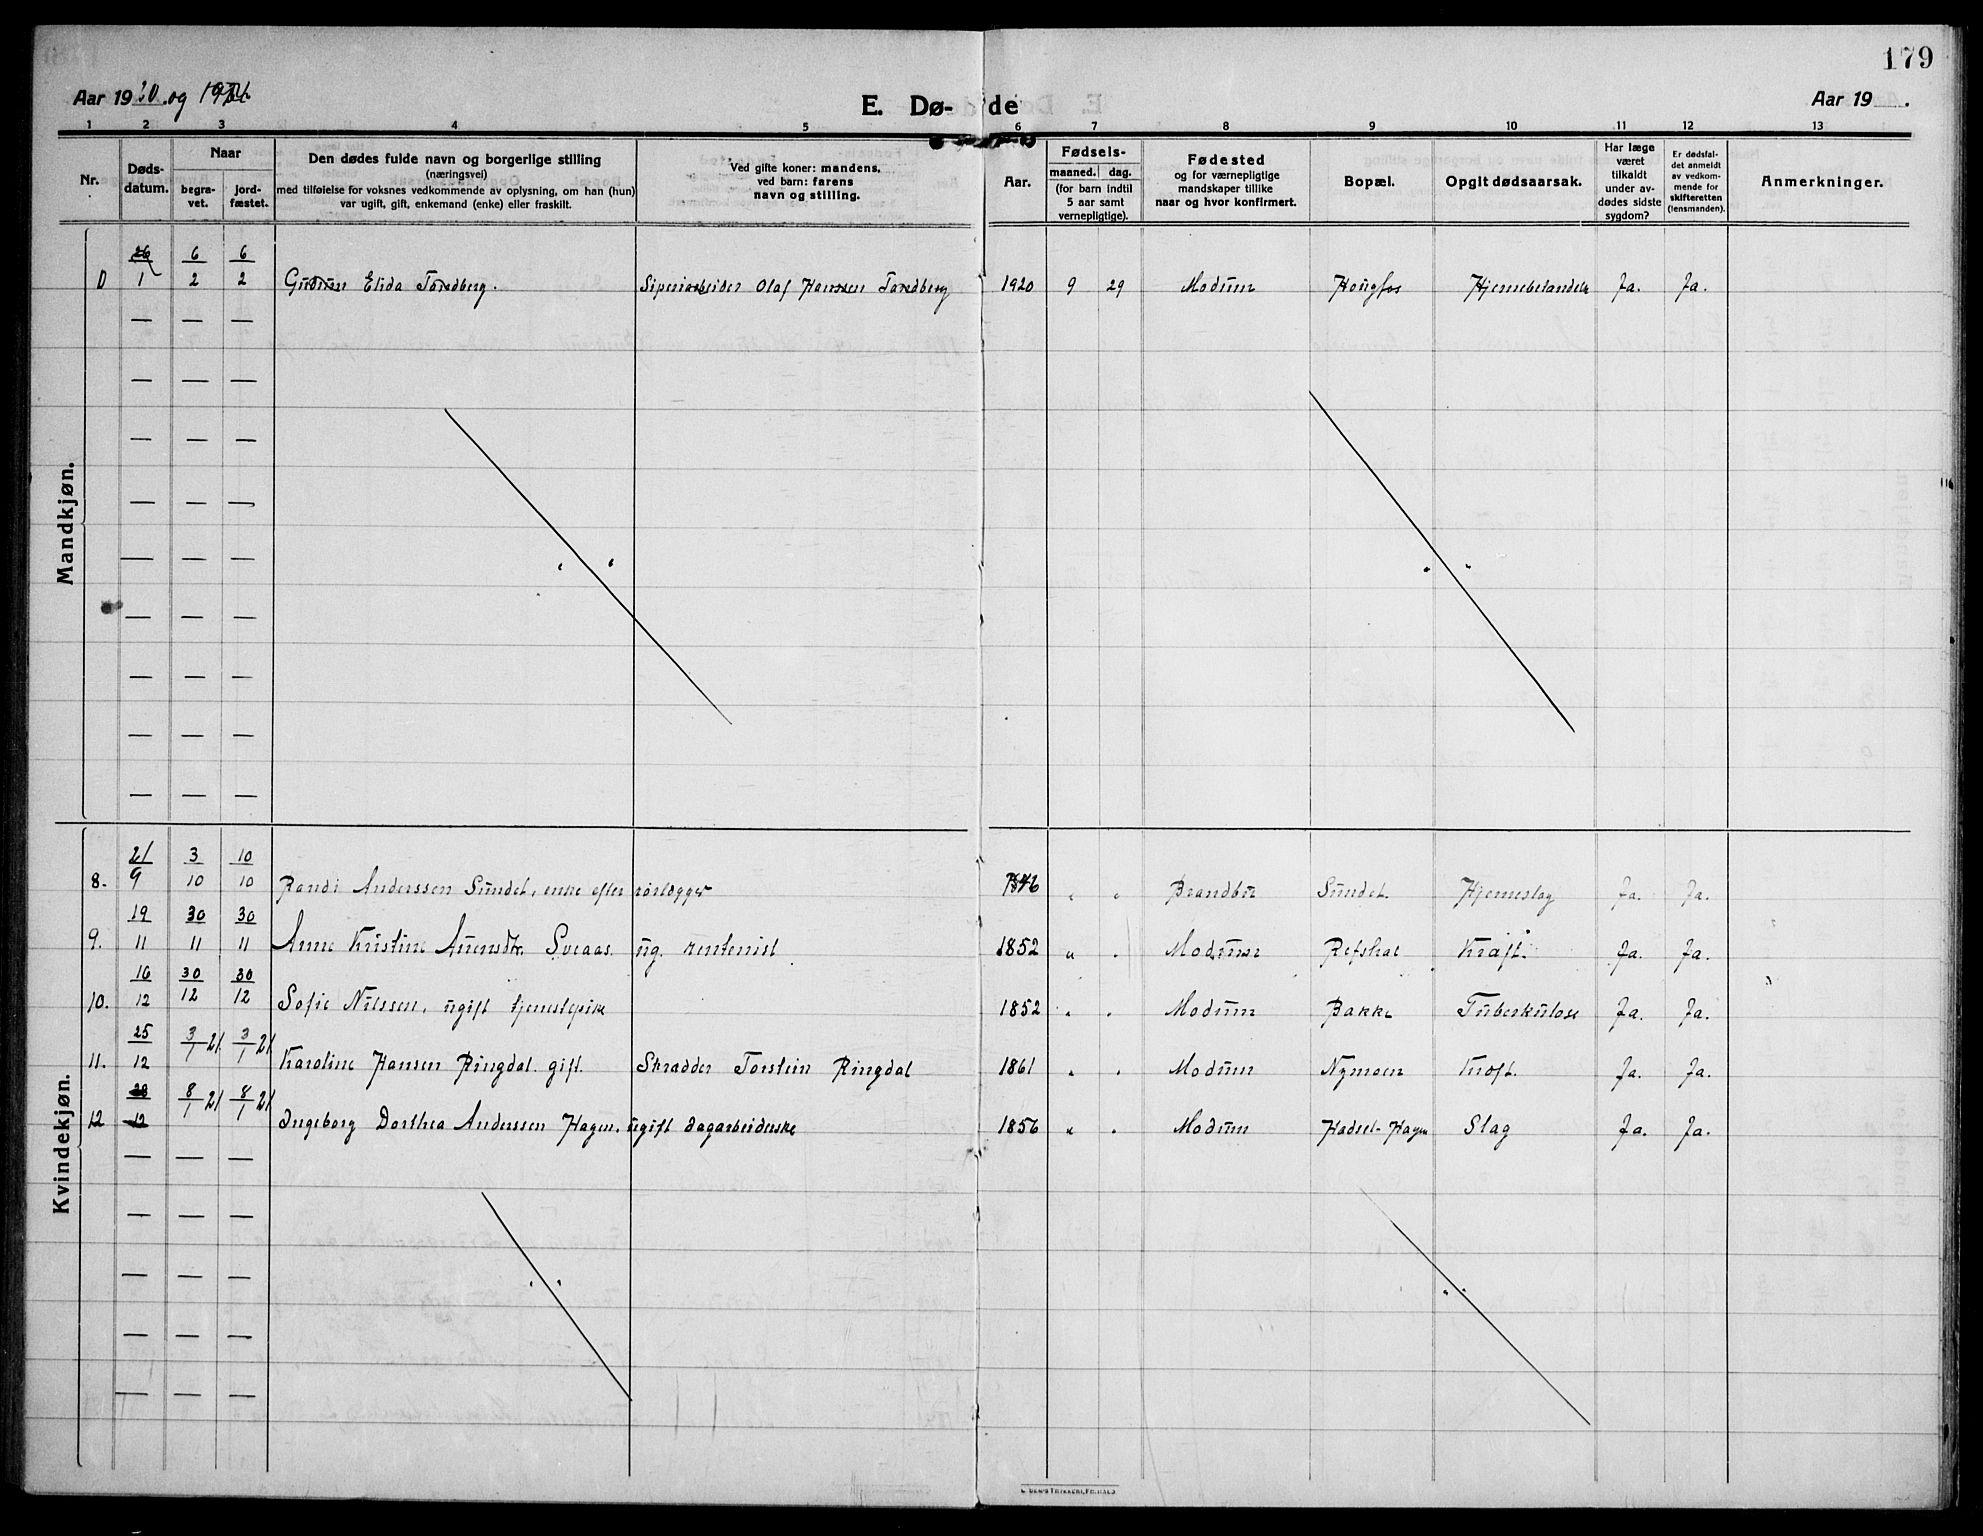 179
Aar 1920 og 1921
E. Dø- de
Aar 19 .
1 2 3 4 5 6 7 8 9 10 11 12 13
Nr.
Døds-
datum.
Naar
begra-
vet.
jord-
fæstet.
Den dødes fulde navn og borgerlige stilling
(næringsvei)
med tilføielse for voksnes vedkommende av oplysning, om han (hun)
var ugift, gift, enkemand (enke) eller fraskilt.
Ved gifte koner: mandens,
ved barn: farens
navn og stilling.
Aar.
Fødsels-
maaned. dag.
(for barn indtil
5 aar samt
vernepligtige).
Fødested
og for værnepligtige
mandskaper tillike
naar og hvor konfirmert.
Bopæl.
Opgit dødsaarsak.
Har læge
været
tilkaldt
under av-
dødes sidste
sygdom?
Er dødsfal-
det anmeldt
av vedkom-
mende for
skifteretten
(lensmanden).
Anmerkninger.
Mandkjøn.
26/1 6/2 6/2 Gudrun Elida Tordberg. Olaf Hanssen Tordberg 1920 9 29 Modum Hougfos Hjernebetændelse Ja. Ja.
Kvindekjøn.
8. 21/9 3/10 10/10 Randi Anderssen Sundet, enke efter rørlægger 1846 " " Brandbu Sundet Hjerneslag Ja. Ja.
9. 19/11 30/11 30/11 Anne Kristine Svraas. ug. rentenist 1852 " " Modum Refshal Kræft. Ja. Ja.
10. 16/12 30/12 30/12 Sofie Nilssen, ugift tjenestepike 1852 " " Modum Bakke Tuberkulose Ja. Ja.
11. 25/12 3/1 21. 3/1 21 Karoline Hansen Ringdal. gift. Skrædder Torstein Ringdal 1861 " " Modum Nymoen Kræft. Ja. Ja.
12 28/12 8/1 21 8/1 21 Ingeborg Dorthea Anderssen Hagen. ugift dagarbeiderske 1856 " " Modum Hadsel-Hagen Slag Ja. Ja.